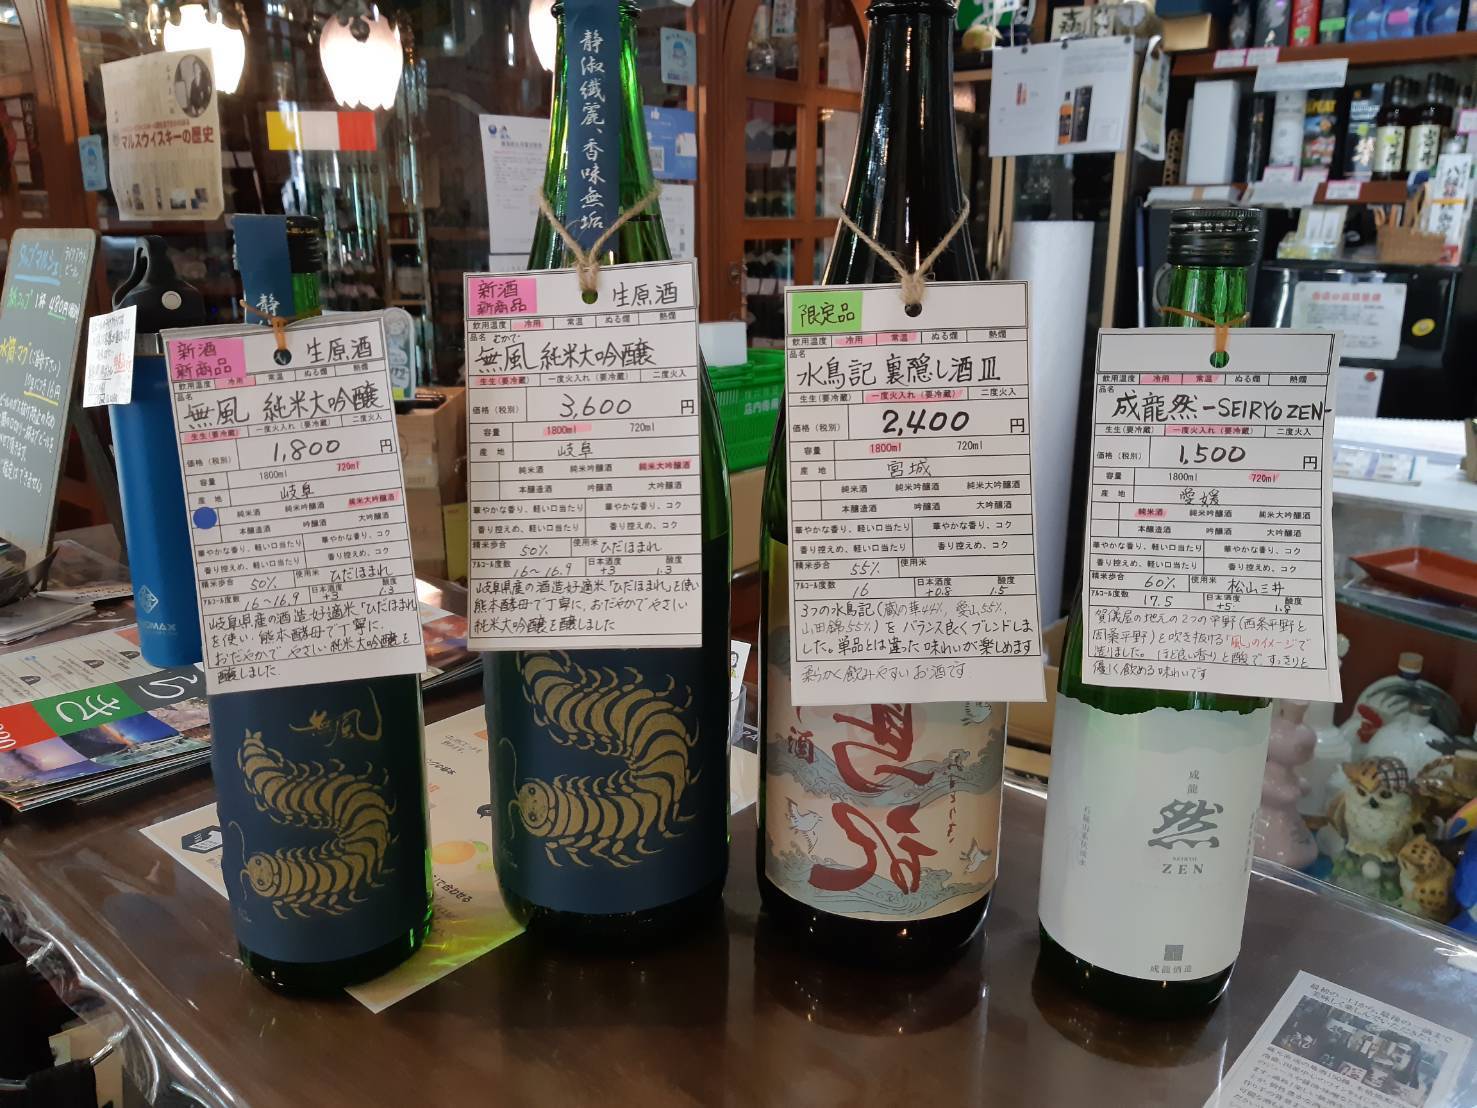 マルスウイスキーの歴史
静淑繊麗、香味無垢
新酒
新商品
生原酒
飲用温度 冷用 常温 ぬる燗 熱燗
品名
無風 純米大吟醸
生生(要冷蔵) 一度火入れ(要冷蔵) 二度火入
価格(税別) 1,800 円
容量 1800ml 720ml
産地 岐阜
純米酒 純米吟醸酒 純米大吟醸酒
本醸造酒 吟醸酒 大吟醸酒
華やかな香り、軽い口当たり 華やかな香り、コク
香り控えめ、軽い口当たり 香り控えめ、コク
精米歩合 50% 使用米 ひだほまれ
アルコール度数 16~16.9 日本酒度 +3 酸度 1.3
岐阜県産の酒造好適米「ひだほまれ」
を使い、熊本酵母で丁寧に、
おだやかで やさしい 純米大吟醸を
醸しました
無風
新酒
新商品
生原酒
飲用温度 冷用 常温 ぬる燗 熱燗
品名 むかで
無風 純米大吟醸
生生(要冷蔵) 一度火入れ(要冷蔵) 二度火入
価格(税別) 3,600 円
容量 1800ml 720ml
産地 岐阜
純米酒 純米吟醸酒 純米大吟醸酒
本醸造酒 吟醸酒 大吟醸酒
華やかな香り、軽い口当たり 華やかな香り、コク
香り控えめ、軽い口当たり 香り控えめ、コク
精米歩合 50% 使用米 ひだほまれ
アルコール度数 16~16.9 日本酒度 +3 酸度 1.3
岐阜県産の酒造好適米「ひだほまれ」を使い
熊本酵母で丁寧に、おだやかでやさしい
純米大吟醸を醸しました
限定品
飲用温度 冷用 常温 ぬる燗 熱燗
品名
水鳥記 裏隠し酒 皿
生生(要冷蔵) 一度火入れ(要冷蔵) 二度火入
価格(税別) 2,400 円
容量 1800ml 720ml
産地 宮城
純米酒 純米吟醸酒 純米大吟醸酒
本醸造酒 吟醸酒 大吟醸酒
華やかな香り、軽い口当たり 華やかな香り、コク
香り控えめ、軽い口当たり 香り控えめ、コク
精米歩合 55% 使用米
アルコール度数 16 日本酒度 +0.8 酸度 1.5
3つの水鳥記(蔵の華44%、愛山55%、
山田錦55%)を バランス良くブレンドしま
した。単品とは違った味わいが楽しめます
柔らかく飲みやすいお酒です
飲用温度 冷用 常温 ぬる燗 熱燗
品名
成龍然-SEIRYO ZEN-
生生(要冷蔵) 一度火入れ(要冷蔵) 二度火入
価格(税別) 1,500 円
容量 1800ml 720ml
産地 愛媛
純米酒 純米吟醸酒 純米大吟醸酒
本醸造酒 吟醸酒 大吟醸酒
華やかな香り、軽い口当たり 華やかな香り、コク
香り控えめ、軽い口当たり 香り控えめ、コク
精米歩合 60% 使用米 松山三井
アルコール度数 17.5 日本酒度 +5 酸度 1.8
賀儀屋の地元の2つの平野(西条平野と
周桑平野)を吹き抜ける「風」のイメージで
造りました。ほど良い香りと酸で すっきりと
優しく飲める味わいです
成龍
然
SEIRYO
ZEN
成龍酒造